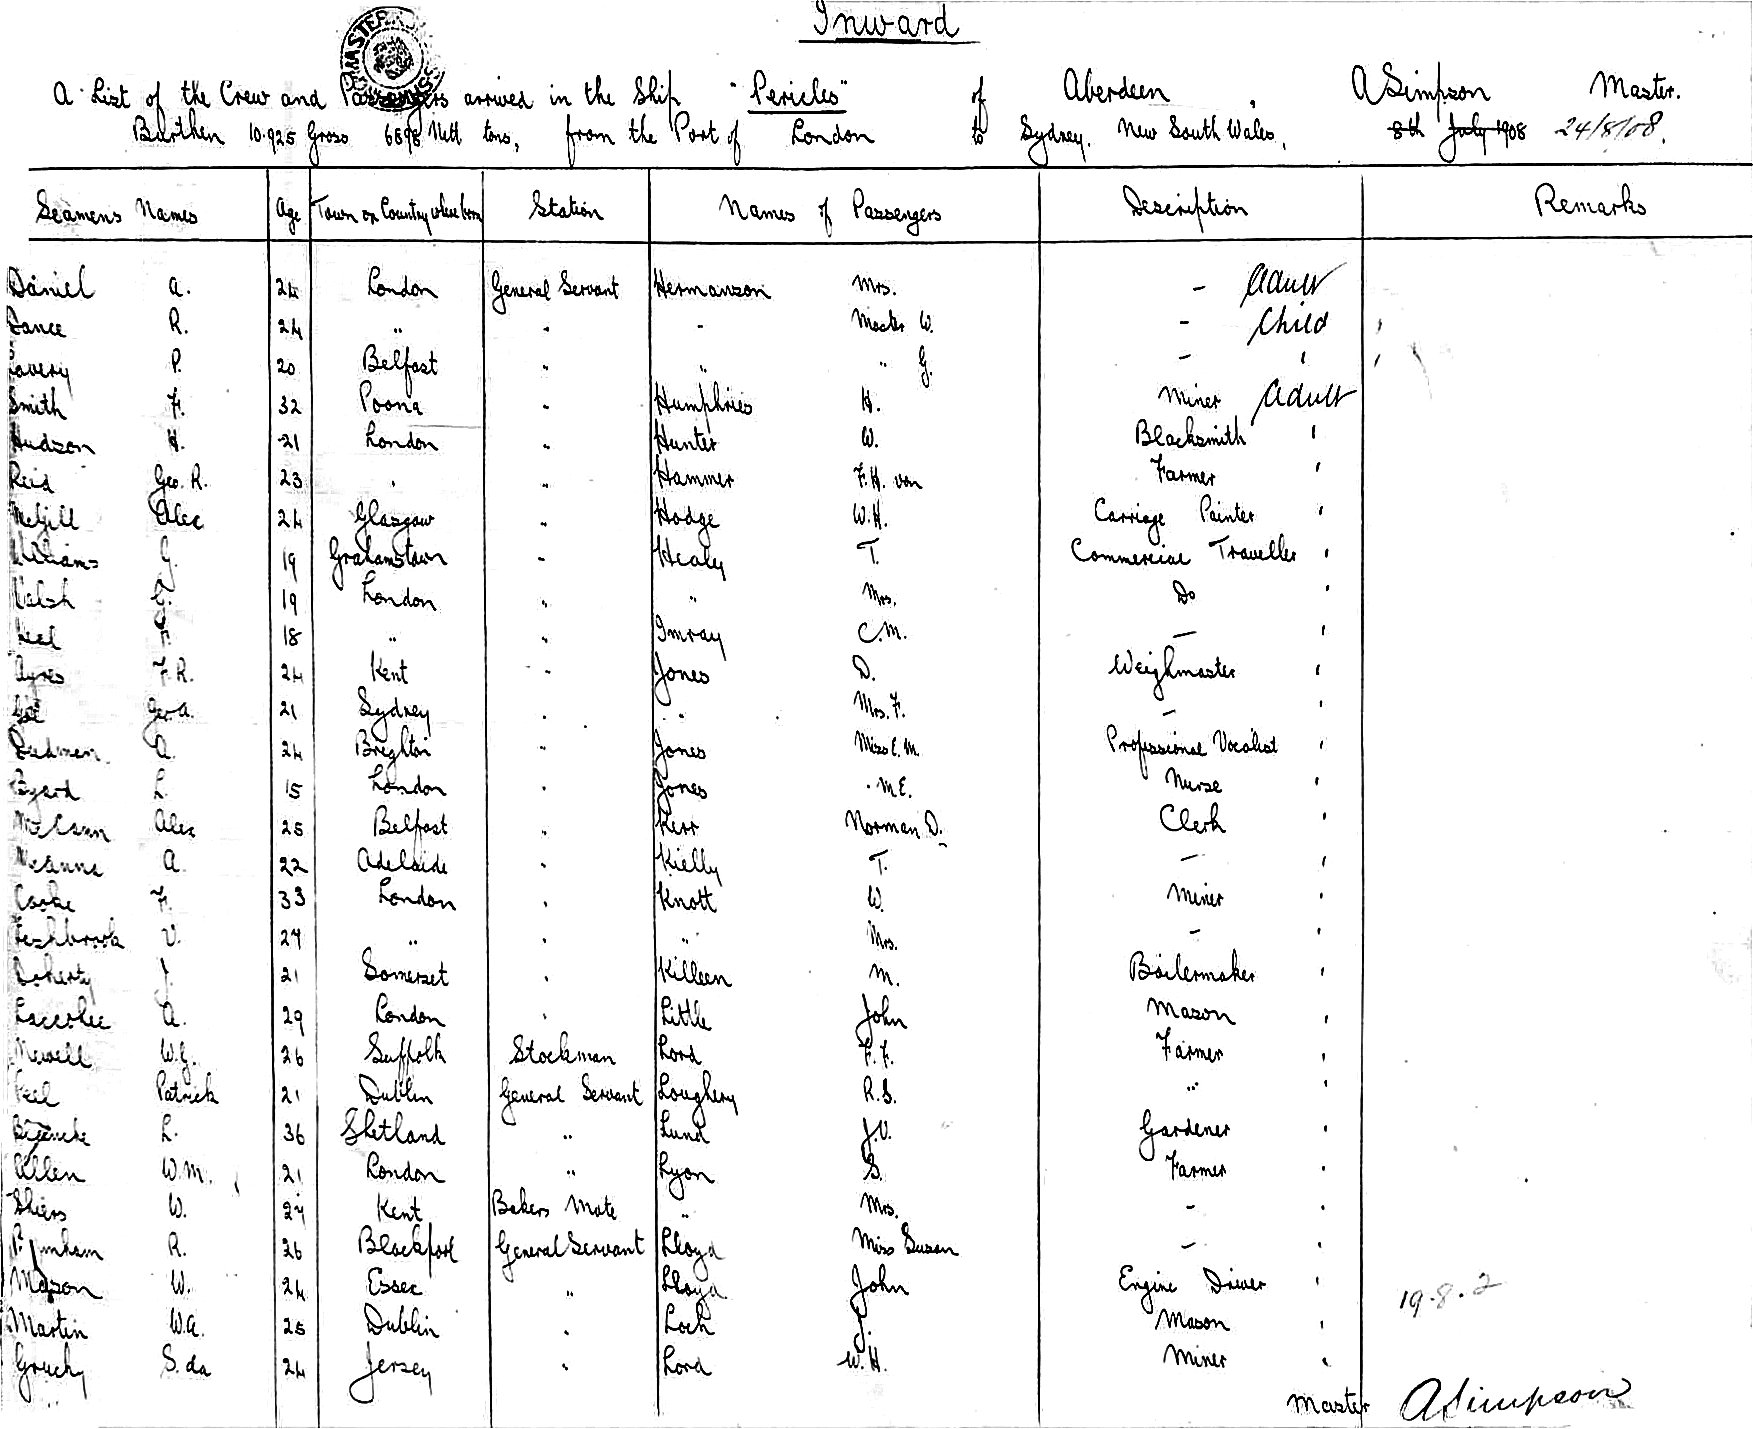 Inward
A List of the Crew and Passengers arrived in the Ship "Pericles" of Aberdeen, A Simpson Master.
Burthen 10.925 Gross 6898 Nett tons, from the Port of London to Sydney. New South Wales, 8th July 1908 24/8/08.
Seamens Names Age Town or Country where born Station Names of Passengers Description Remarks
Daniel A. 24 London General Servant Hermanson Mrs. - Adult
Dance R. 24 " " - Master W. - Child '
avery P. 20 Belfast " " " G. - ' '
Smith F. 32 Poona " Humphries H. Miner Adult
Hudson H. 21 London " Hunter W. Blacksmith '
Reid Geo. R. 23 " " Hammer F.H. von Farmer '
McGill Alec 24 Glasgow " Hodge W.H. Carriage Painter '
Williams G. 19 Grahamstown " Healy T. Commercial Traveller '
Walsh 19 London " " Mrs. Do '
18 " " Imray C.M. - '
Ayres F.R. 24 Kent " Jones D. Weighmaster '
Geo. A. 21 Sydney " " Mrs. F. -
A. 24 Brighton " Jones Miss C.M. Professional Vocalist '
Byard L. 15 London " Jones " M.E. Nurse '
Alec 25 Belfast " Kerr Norman D. Clerk '
A. 22 Adelaide " Kielly T. - '
Cooke F. 33 London " Knott W. Miner '
V. 27 " " " Mrs. - '
Doherty J. 21 Somerset " Killeen M. Boilermaker '
A. 29 London " Little John Mason '
Newell W.G. 26 Suffolk Stockman Lord F.F. Farmer '
Patrick 21 Dublin General Servant Loughery R.S. " '
L. 36 Shetland " Lund J.V. Gardener '
Allen W.M. 21 London " Lyon S. Farmer '
Shiers W. 27 Kent Bakers Mate " Mrs. - '
R. 26 Blackpool General Servant Lloyd Miss Susan - '
Mason W. 24 Essec " Lloyd John Engine Driver ' 19.8.2
Martin W.A. 25 Dublin " Loch J. Mason '
Gruchy S. da 24 Jersey " Lord W.H. Miner "
Master A Simpson